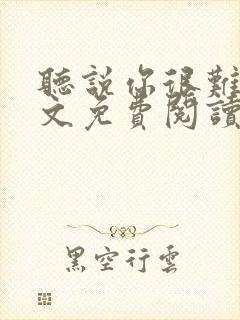 聽說你很難
文免費閱讀
黑空行雲